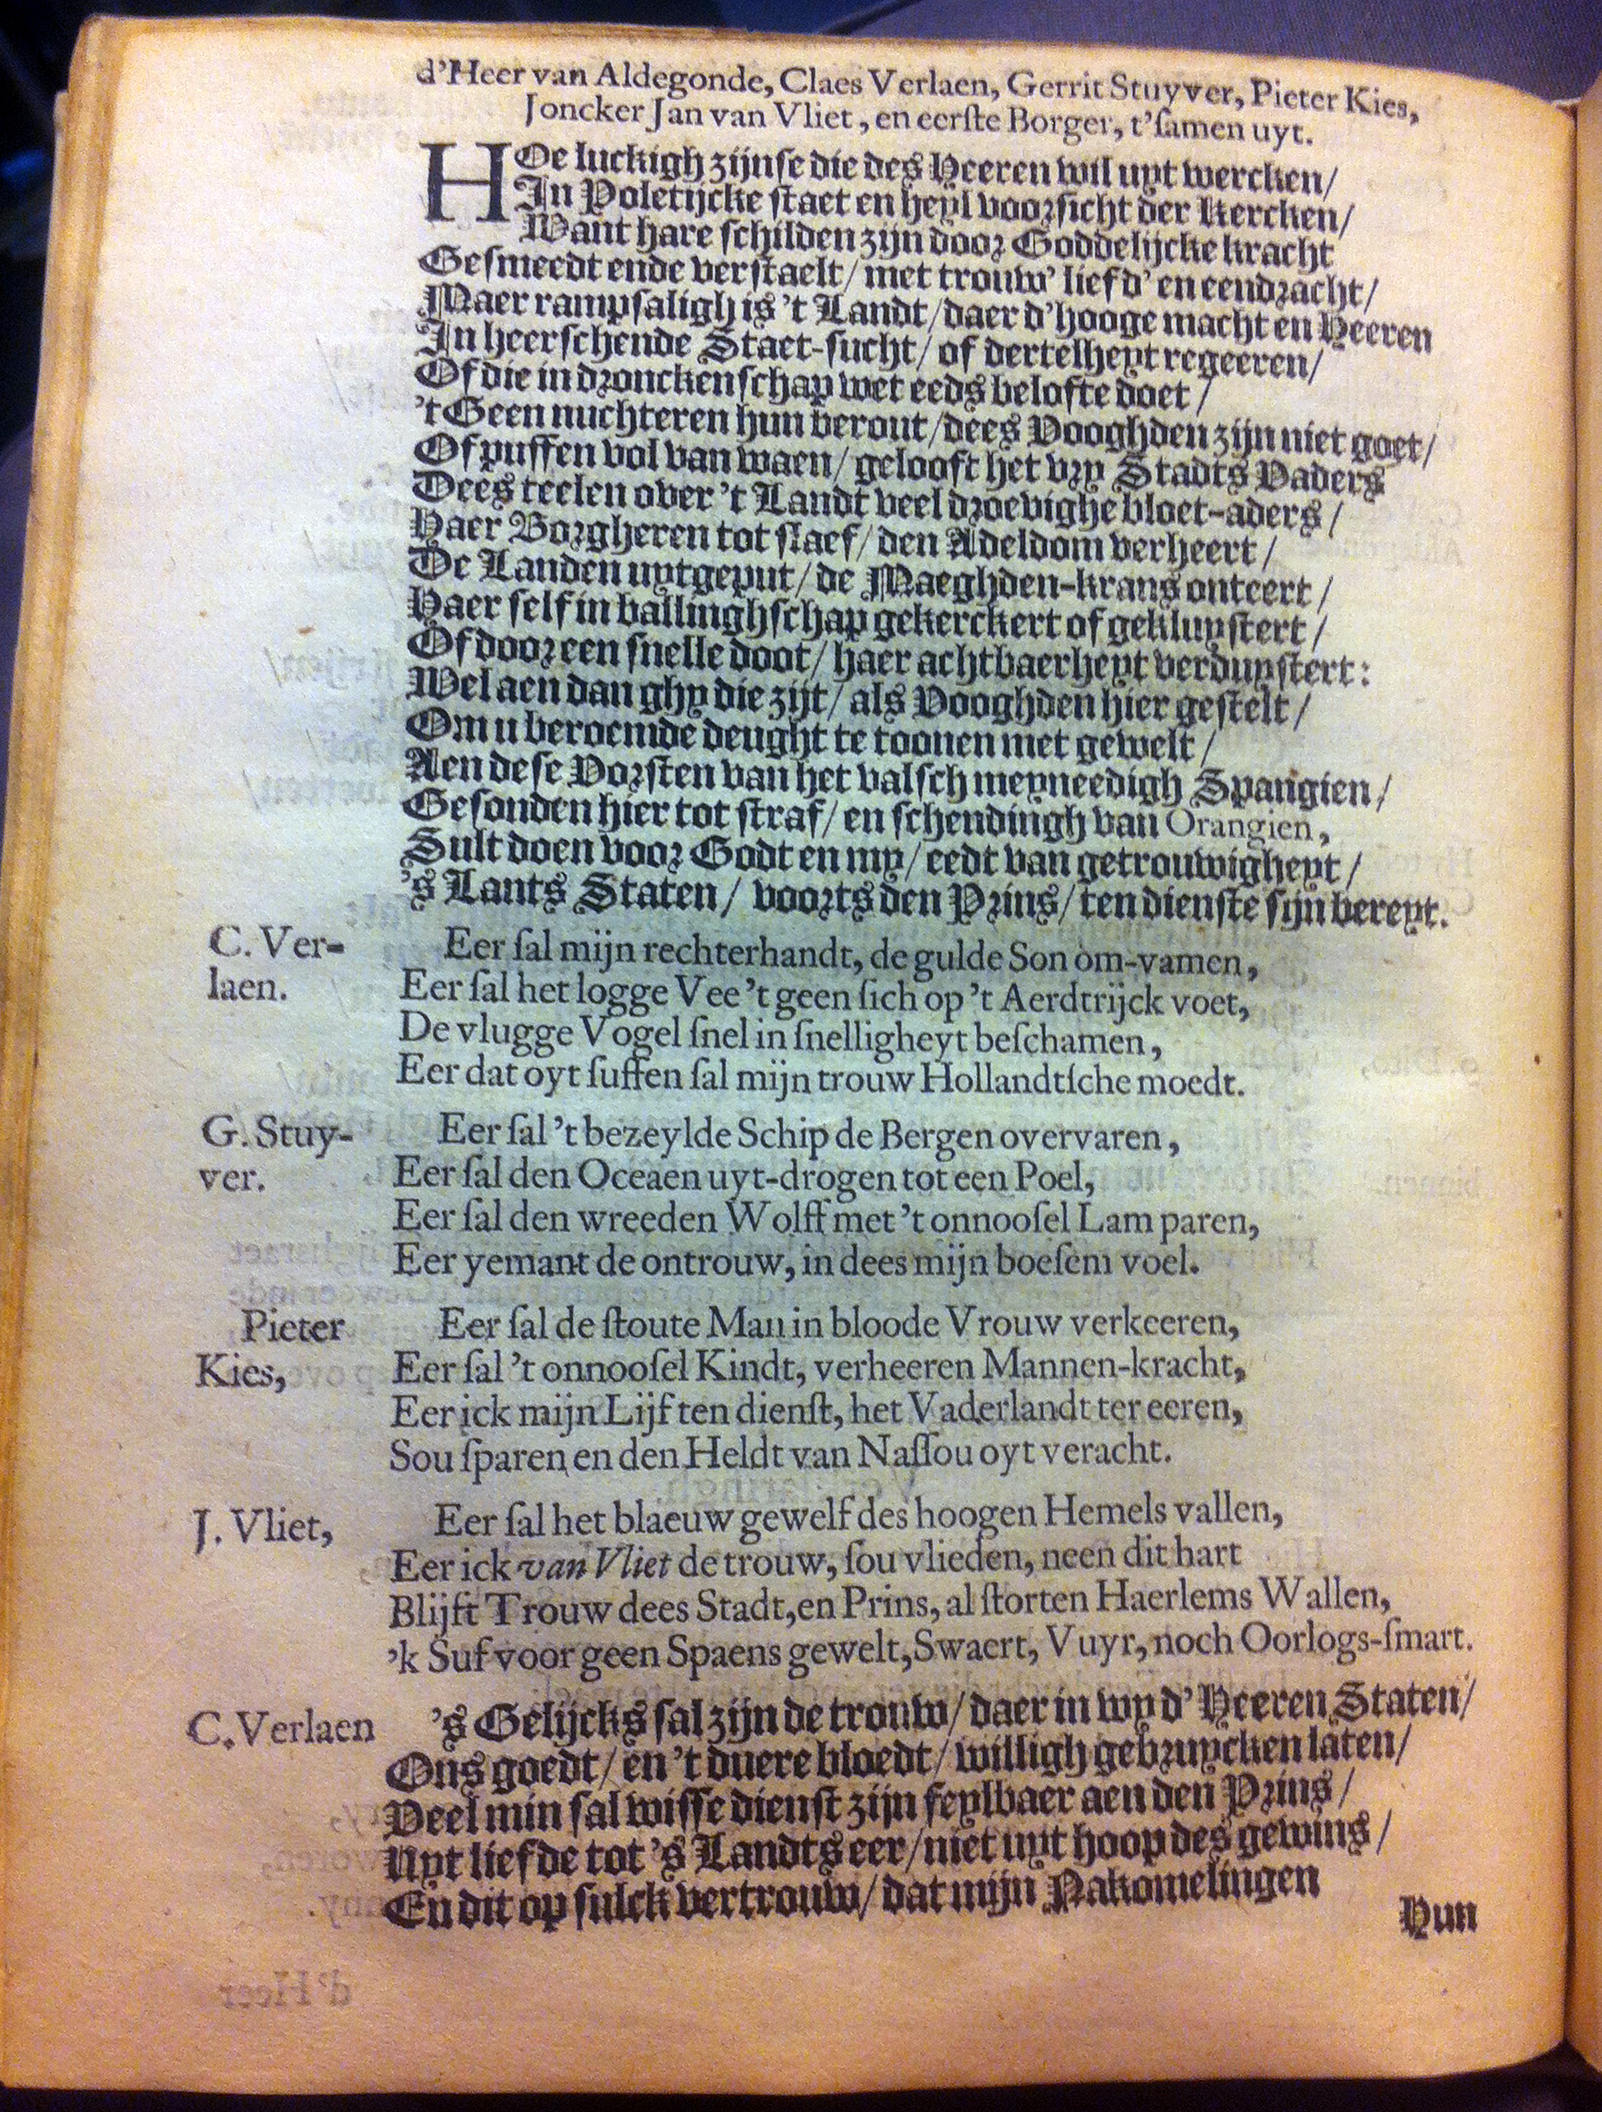 d'Heer van Aldegonde, Claes Verlaen, Gerrit Stuyver, Pieter Kies,
Joncker Jan van Vliet, en eerſte Borger, t'ſamen uyt.
HOe luckigh zijnſe die des Heeren wil uyt wercken/
In Poletijcke ſtaet en heyl voorſicht der Kercken/
Want hare ſchilden zijn door Goddelijcke kracht
Geſmeedt ende verſtaelt/ met trouw' liefd' en eendracht/
Maer rampſaligh is 't Landt/ daer d'hooge macht en Heeren
In heerſchende Staet-ſucht/ of dertelheyt regeeren/
Of die in dronckenſchap wet eeds belofte doet/
't Geen nuchteren hun berout/ dees Vooghden zijn niet goet/
Of puffen vol van waen/ gelooft het vry Stadts Vaders
Dees teelen over 't Landt veel droevighe bloet-aders/
Haer Borgheren tot ſlaef/ den Adeldom verheert/
De Landen uytgeput/ de Maeghden-krans onteert/
Haer ſelf in ballinghſchap gekerckert of gekluyſtert/
Of door een ſnelle doot/ haer achtbaerheyt verduyſtert:
Wel aen dan ghy die zijt/ als Vooghden hier geſtelt/
Om u beroemde deught te toonen met gewelt/
Aen deſe Vorſten van het valſch meyneedigh Spangien/
Geſonden hier tot ſtraf/ en ſchendingh van Orangien,
Sult doen voor Godt en my/ eedt van getrouwigheyt/
's Lants Staten/ voorts den Prins/ ten dienſte ſijn bereyt.
C. Ver-
laen.
Eer ſal mijn rechterhandt, de gulde Son om-vamen,
Eer ſal het logge Vee 't geen ſich op 't Aerdtrijck voet,
De vlugge Vogel ſnel in ſnelligheyt beſchamen,
Eer dat oyt ſuffen ſal mijn trouw Hollandtſche moedt.
G. Stuy-
ver.
Eer ſal 't bezeylde Schip de Bergen overvaren,
Eer ſal den Oceaen uyt-drogen tot een Poel,
Eer ſal den wreeden Wolff met 't onnooſel Lam paren,
Eer yemant de ontrouw, in dees mijn boeſem voel.
Pieter
Kies,
Eer ſal de ſtoute Man in bloode Vrouw verkeeren,
Eer ſal 't onnooſel Kindt, verheeren Mannen-kracht,
Eer ick mijn Lijf ten dienſt, het Vaderlandt ter eeren,
Sou ſparen en den Heldt van Naſſou oyt veracht.
J. Vliet,
Eer ſal het blaeuw gewelf des hoogen Hemels vallen,
Eer ick van Vliet de trouw, ſou vlieden, neen dit hart
Blijft Trouw dees Stadt, en Prins, al ſtorten Haerlems Wallen,
'k Suf voor geen Spaens gewelt, Swaert, Vuyr, noch Oorlogs-ſmart.
C. Verlaen
's Gelijcks ſal zijn de trouw/ daer in wy d'Heeren Staten/
Ons goedt/ en 't duere bloedt/ willigh gebruycken laten/
Veel min ſal wiſſe dienſt zijn feylbaer aen den Prins/
Uyt liefde tot 's Landts eer/ niet uyt hoop des gewins/
En dit op ſulck vertrouw/ dat mijn Nakomelingen
Hun